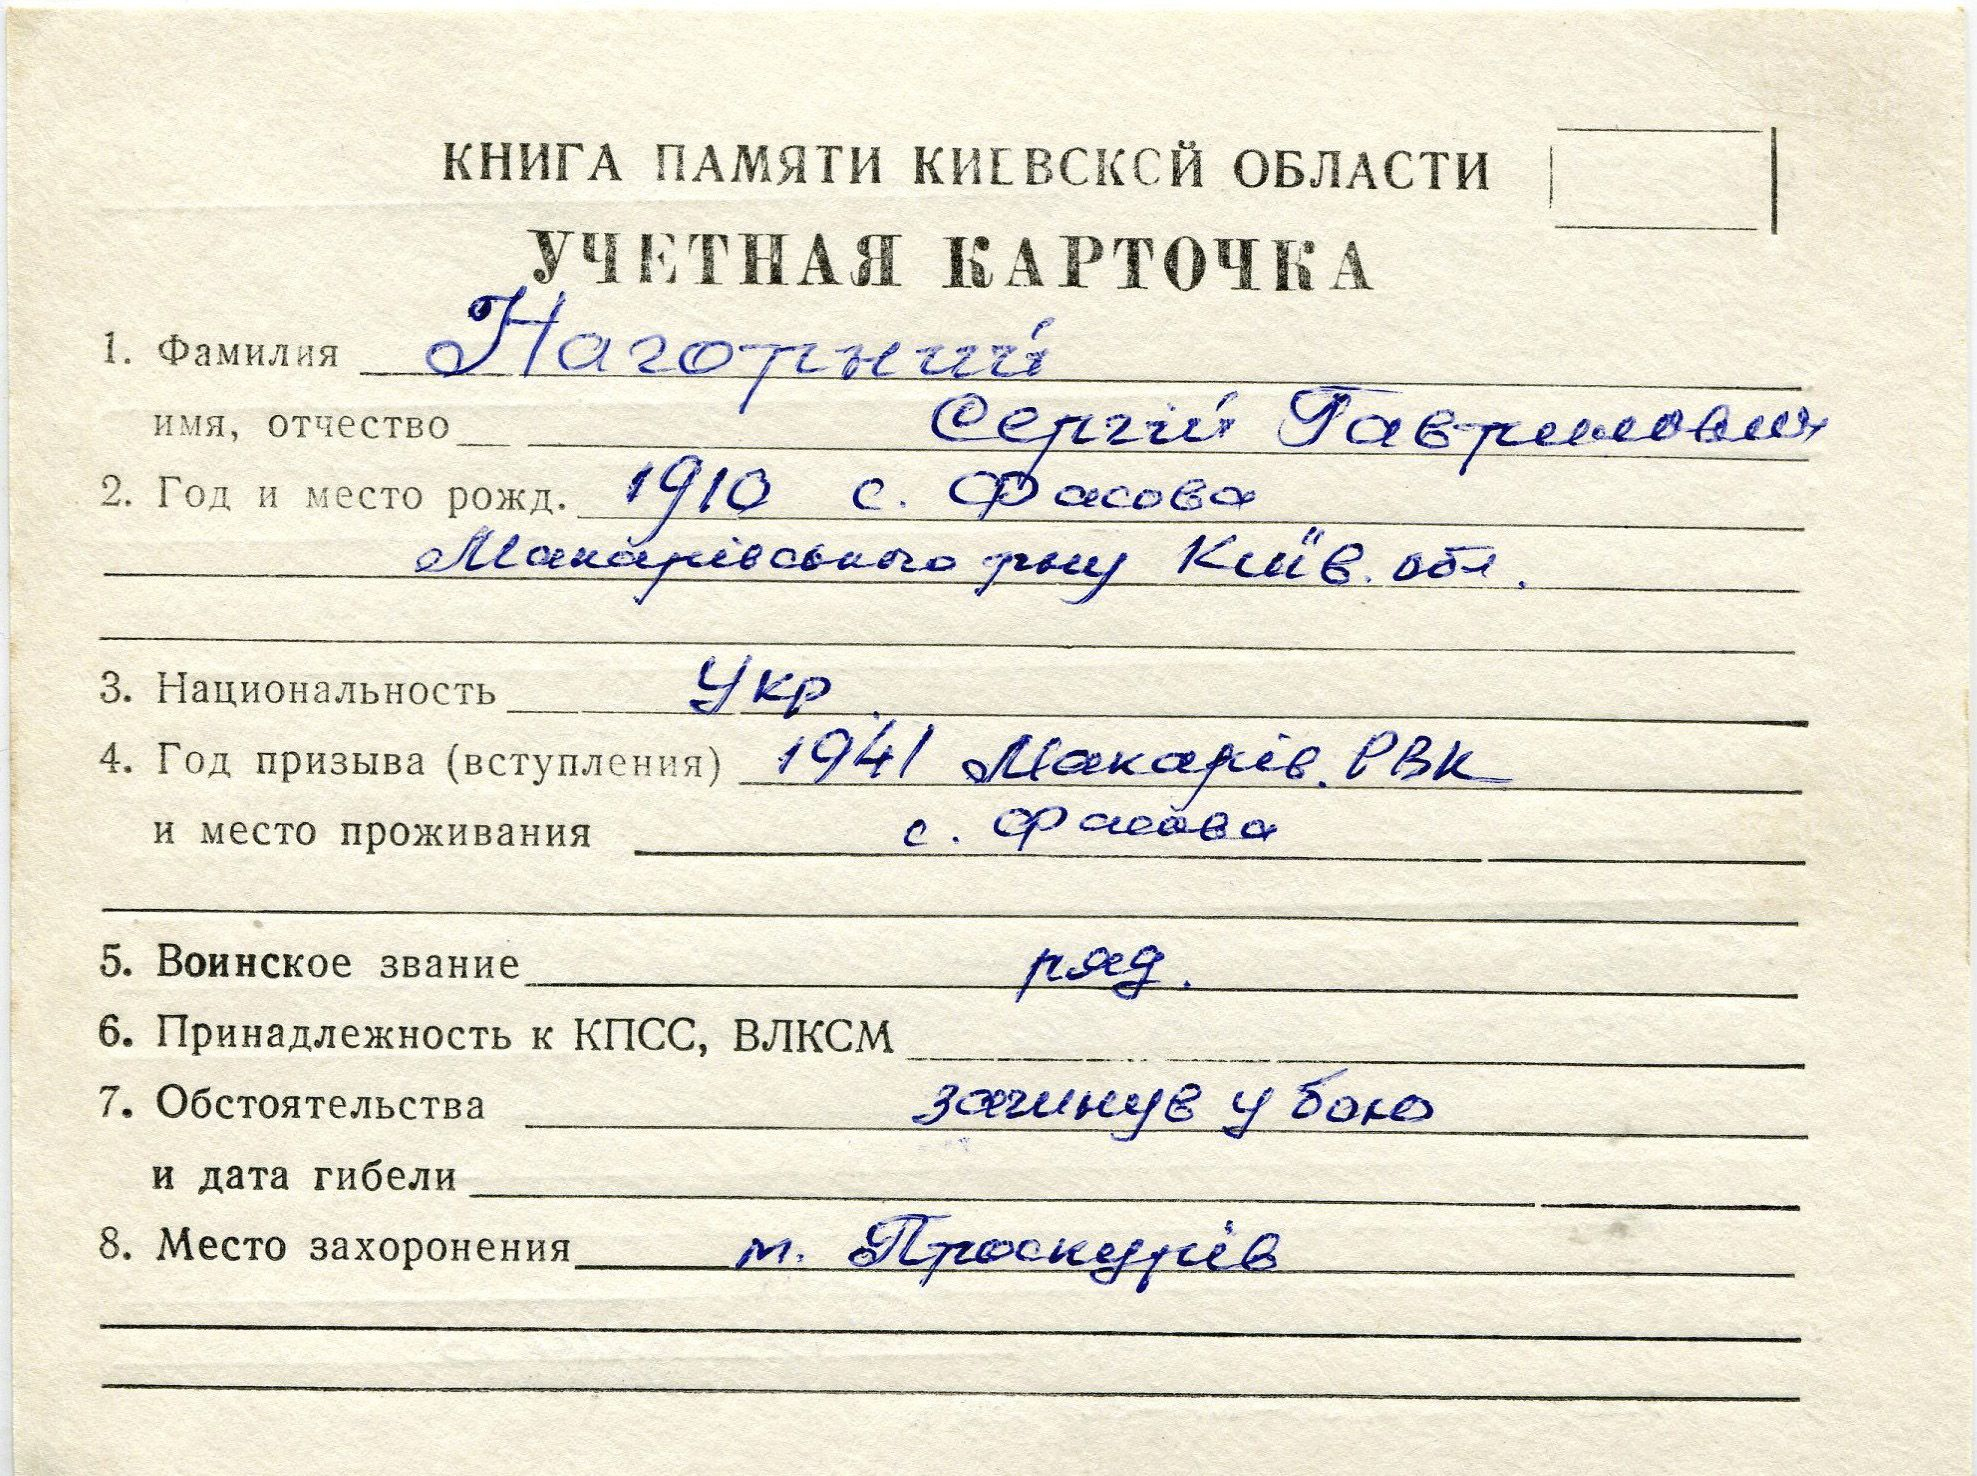 КНИГА ПАМЯТИ КИЕВСКОЙ ОБЛАСТИ
УЧЕТНАЯ КАРТОЧКА
1. Фамилия Нагорний
имя, отчество Сергій Гаврилович
2. Год и место рожд. 1910 с. Фасова
Макарівського р-ну Київ. обл.
3. Национальность Укр.
4. Год призыва (вступления) 1941 Макарів. РВК
и место проживания с. Фасова
5. Воинское звание ряд.
6. Принадлежность к КПСС, ВЛКСМ
7. Обстоятельства загинув у бою
и дата гибели
8. Место захоронения м. Проскурів